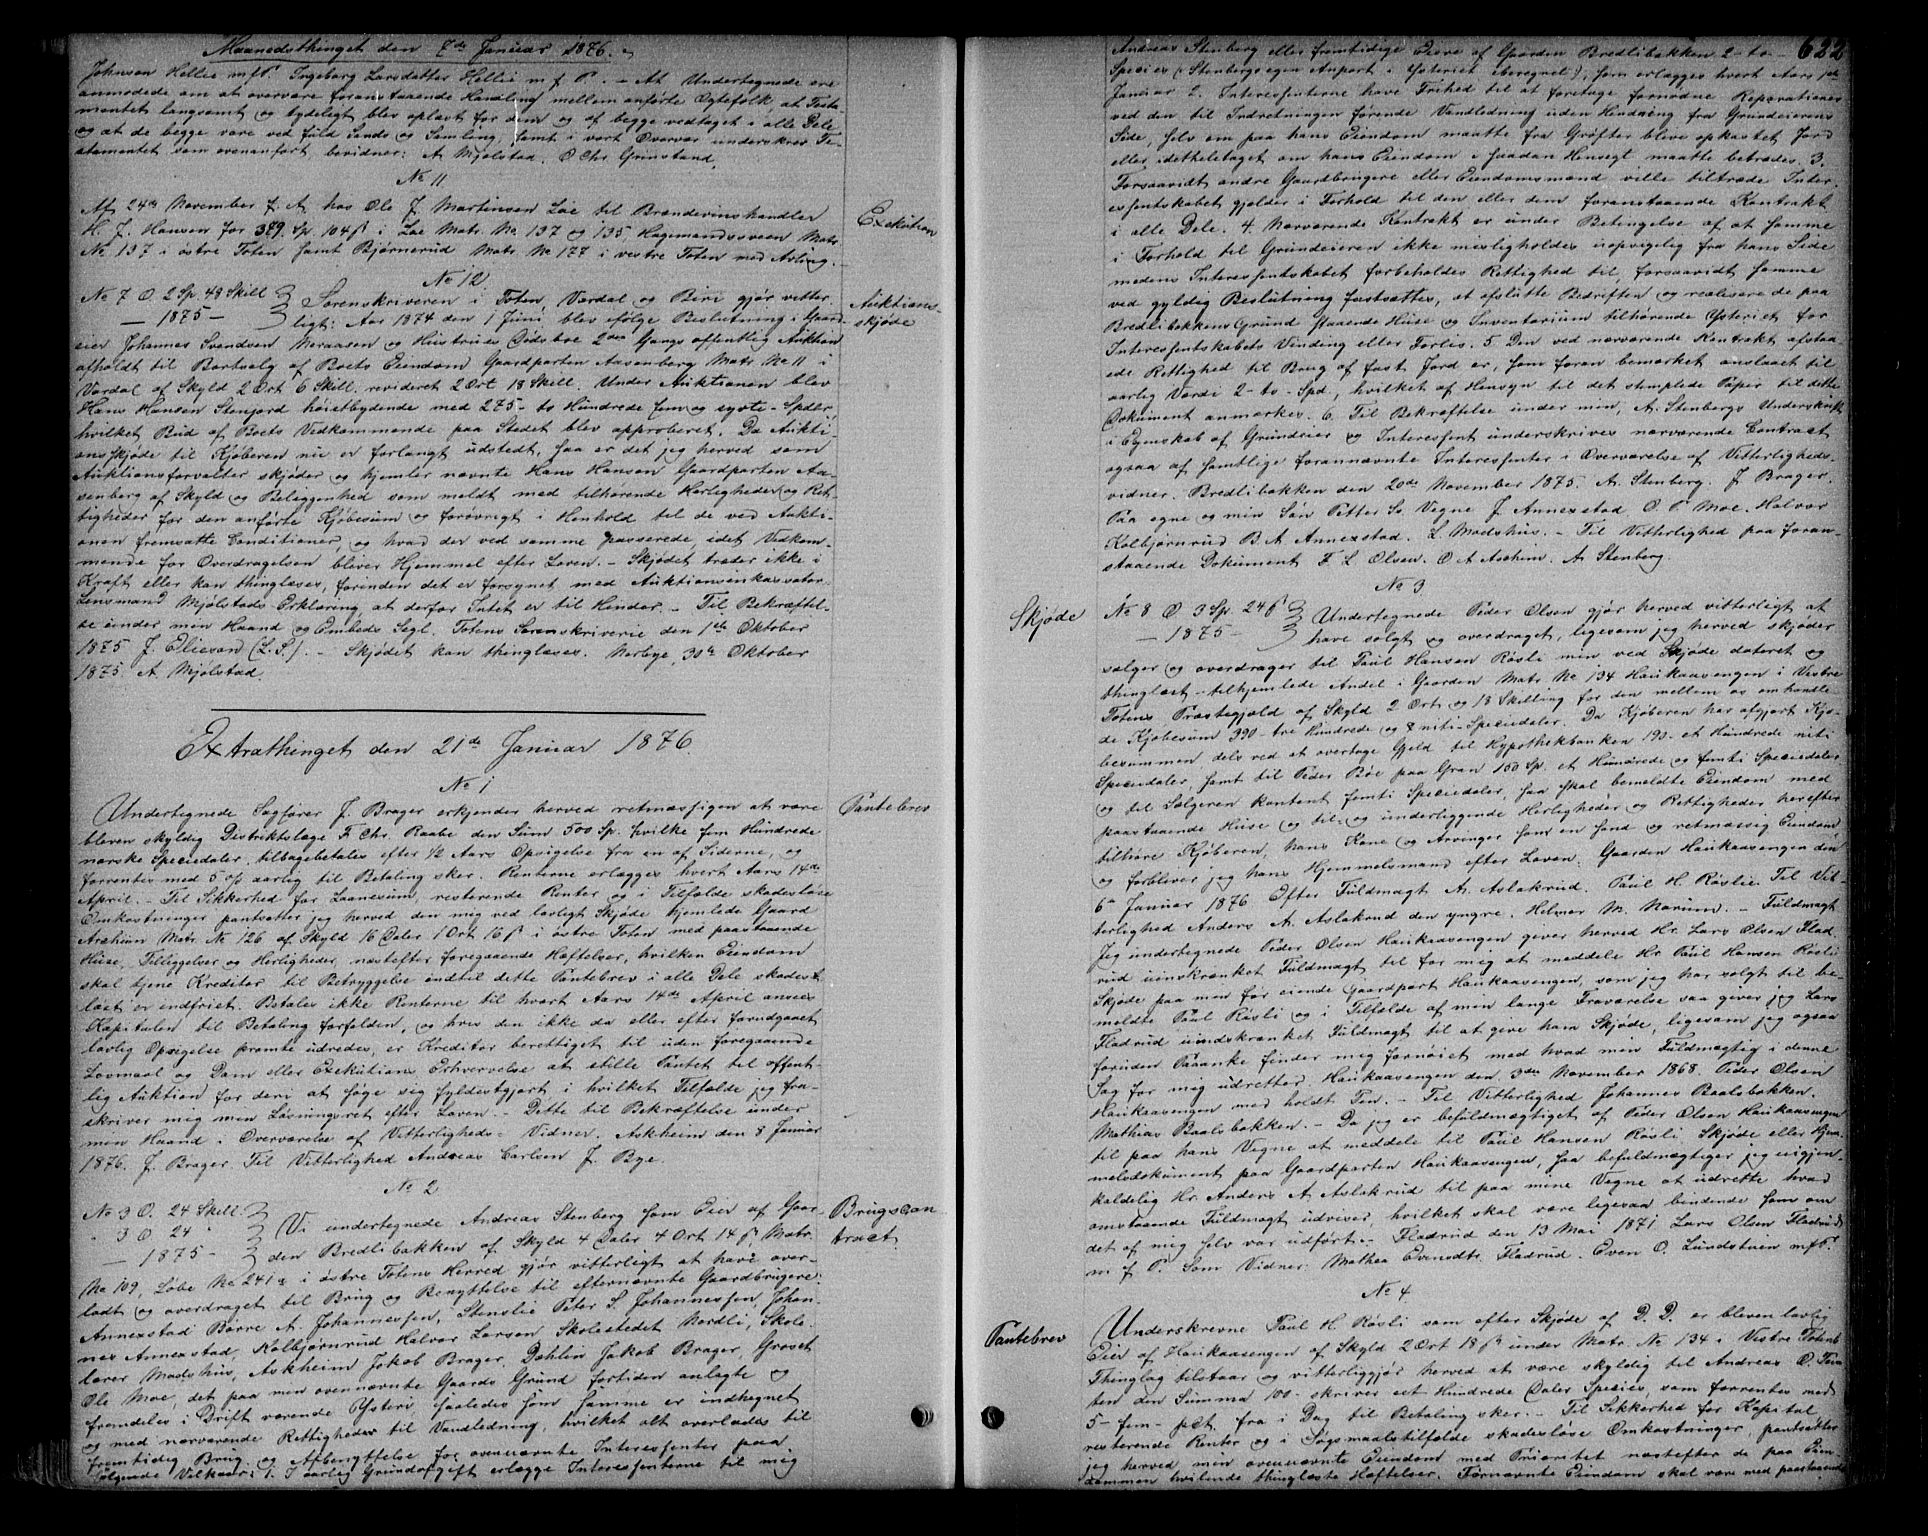 Maanedsthinget den 7de Januar 1876.
Johnsen Hellie m.f.P. Ingeborg Larsdatter Hellie m f P. – At Undertegnede ere
anmodede om at overvære foranstaaende Handling mellem anførte Egtefolk at Testa-
mentet langsomt og tydeligt blev oplæst for dem og af begge vedtaget i alle Dele
og at de begge vare ved fuld Sands og Samling, samt i vort Overvær underskrev Te-
stamentet som ovenanført, bevidner: A. Mjølstad. O Chr. Grimstand.
No 11
At 24de November f. A. hos Ole J. Martinsen Løe til Brændevinshandler
H. J. Hansen for 329 Sp. 104 ß i Løe Matr. No 137 og 135, Hagemandssveen Matr.
No 137 i østre Toten samt Bjørnerud Matr. No 177 i vestre Toten med Avling.
Exekution
No 12
No 7 O. 2 Sp. 48 Skill
– 1875 –
Sorenskriveren i Toten, Vardal og Biri gjør vitter-
ligt: Aar 1874 den 1 Juni blev ifølge Beslutning i Gaard-
eier Johannes Svendsen Meraasen og Hustrues Dødsbo 2den Gangs offentlig Auktion
afholdt til Bortsalg af Boets Eiendom Gaardparten Aasenberg Matr No 11 i
Vardal af Skyld 2 Ort 6 Skill. revideret 2 Ort 18 Skill. Under Auktionen blev
Hans Hansen Stenjord høistbydende med 275 – to Hundrede fem og syvti – Spdlr,
hvilket Bud af Boets Vedkommende paa Stedet blev approberet. Da Aukti-
onsskjøde til Kjøberen nu er forlangt udstedt, saa er det jeg herved som
Auktionsforvalter skjøder og hjemler nævnte Hans Hansen Gaardparten Aa-
senberg af Skyld og Beliggenhed som meldt med tilhørende Herligheder og Ret-
tigheder for den anførte Kjøbesum og forøvrigt i Henhold til de ved Aukti-
onen fremsatte Conditioner og hvad der ved samme passerede idet Vedkom-
mende for Overdragelsen bliver Hjemmel efter Loven. – Skjødet træder ikke i
Kraft eller kan thinglæses, forinden det er forsynet med Auktionsinkassator
Lensmand Mjølstads Erklæring, at derfor Intet er til Hinder. – Til Bekræftel-
se under min Haand og Embeds Segl. Totens Sorenskriverie den 1ste Oktober
1875 J. Elieson (L.S.). – Skjødet kan thinglæses. Narbye, 30te Oktober
1875 A. Mjølstad.
Auktions-
skjøde
Extrathinget den 21de Januar 1876.
No 1
Undertegnede Sagfører J. Brager erkjender herved retmæssigen at være
bleven skyldig Distriktslæge F. Chr. Raabe den Sum 500 Sp. hvilke fem Hundrede
norske Speciedaler, tilbagebetales efter 1/2 Aars Opsigelse fra en af Siderne, og
forrentes med 5 o/o aarlig til Betaling sker. Renterne erlægges hvert Aars 14de
April. – Til Sikkerhed for Laanesum, resterende Renter og i Tilfælde skadesløse
Omkostninger pantsætter jeg herved den mig ved lovligt Skjøde hjemlede Gaard
Aschim Matr. No 126 af Skyld 16 Daler 1 Ort 16 ß i østre Toten med paastaaende
Huse, Tilliggelser og Herligheder, næstefter foregaaende Hæftelser, hvilken Eiendom
skal tjene Kreditor til Betryggelse indtil dette Pantebrev i alle Dele skades-
løst er indfriet. Betales ikke Renterne til hvert Aars 14de April ansees
Kapitalen til Betaling forfalden, og hvis den ikke da eller efter forudgaaet
lovlig Opsigelse promte udredes, er Kreditor berettiget til uden foregaaende
Lovmaal og Dom eller Exekutions Erhvervelse at stille Pantet til offent-
lig Auktion for deri at søge sig fyldestgjort i hvilket Tilfælde jeg fra-
skriver mig min Løsningsret efter Loven. – Dette til Bekræftelse under
min Haand i Overværelse af Vitterligheds-Vidner. Askheim den 8 Januar
1876. J. Brager. Til Vitterlighed Andreas Carlsen J. Bye.
Pantebrev
No 2
No 3 O. 24 Skill.
" 3 O 24 "
– 1875 –
Vi undertegnede Andreas Stenberg som Eier af Gaar-
den Bredlibakken af Skyld 4 Daler 4 Ort 14 ß, Matr.
No 109, Løbe No 241a i østre Totens Herred gjør vitterligt at have over-
ladt og overdraget til Brug og Benyttelse til efternævnte Gaardbrugere:
Annexstad Børre A. Johannessen, Stenslie Peter S. Johannessen, Johan-
nes Annexstad, Kolbjørnrud Halvor Larsen Skolestedet Nordli, Skole-
lærer Madshus, Askheim Jakob Brager, Dæhlin Jakob Brager, Groset
Ole Moe, det paa min ovennævnte Gaards Grund fortiden anlagte og
fremdeles i Drift værende Ysteri saaledes som samme er indhegnet
og med nærværende Rettigheder til Vandledning, hvilket alt overlades til
fremtidig Brug og Afbenyttelse for ovennævnte Interessenter paa
følgende Vilkaar: 1. I aarlig Grundafgift erlægge Interessenterne til mig
Brugscon-
tract
622
Andreas Stenberg eller fremtidige Eiere af Gaarden Bredlibakken 2 – to –
Species (Stenbergs egen Anpart i Ysteriet iberegnet), som erlægges hvert Aars 1ste
Januar 2. Interessenterne have Frihed til at foretage fornødne Reparationer
ved den til Indretningen førende Vandledning uden Hindring fra Grundeierens
Side, selv om paa hans Eiendom maatte fra Grøfter blive opkastet Jord
eller idetheletaget om hans Eiendom i saadan Henseegt maatte betrædes. 3.
Forsaavidt andre Gaardbrugere eller Eiendomsmænd ville tiltræde Inter-
essentskabet gjelder i Forhold til den eller dem foranstaaende Kontrakt
i alle Dele. 4. Nærværende Kontrakt er under Betingelse af at samme
i Forhold til Grundeieren ikke misligholdes uopsigelig fra hans Side
medens Interessentskabet forbeholdes Rettighed til, forsaavidt samme
ved gyldig Beslutning fastsættes, at afslutte Bedriften og realisere de paa
Bredlibakkens Grund staaende Huse og Inventarium tilhørende Ysteriet for
Interessentskabets Vinding eller Forlis. 5. Den ved nærværende Kontrakt afstaa-
ede Rettighed til Brug af fast Jord er, som foran bemærket anslaaet til
aarlig Værdi 2 – to – Spd, hvilket af Hensyn til det stemplede Papir til dette
Dokument anmærkes. 6. Til Bekræftelse under min, A. Stenbergs Underskrift
i Egenskab af Grundeier og Interessent underskrives nærværende Contract
ogsaa af samtlige forannævnte Interessenter i Overværelse af Vitterligheds-
vidner. Bredlibakken den 20de November 1875. A. Stenberg. J Brager.
Paa egne og min Søn Petter Ss Vegne J. Annexstad O. P. Moe. Halvor
Kolbjørnrud B. A. Annexstad. L Madshus. – Til Vitterlighed paa foran-
staaende Dokument F. L Olsen. O. A Aschim. A. Stenberg.
No 3
Skjøde
No 8 O 3 Sp. 24 ß
– 1875 –
Undertegnede Peder Olsen gjør herved vitterligt at
have solgt og overdraget, ligesom jeg herved skjøder
sælger og overdrager til Paul Hansen Røsli min ved Skjøde dateret og
thinglæst – tilhjemlede Andel i Gaarden Matr. No 134 Haukaasengen i Vestre
Totens Præstegjæld af Skyld 2 Ort og 18 Skilling for den mellem os omhandle-
de Kjøbesum 390 – tre Hundrede og niti – Speciedaler. Da Kjøberen har afgjort Kjø-
besummen dels ved at overtage Gjeld til Hypothekbanken 190 – et Hundrede niti
Speciedaler, samt til Peder Bøe paa Gran 150 Sp. et Hundrede og femti Speciedaler
og til Sælgeren kontant femti Speciedaler, saa skal bemeldte Eiendom med
paastaaende Huse og til- og underliggende Herligheder og Rettigheder herefter
tilhøre Kjøberen, hans Kone og Arvinger som en sand og retmæssig Eiendom
og forbliver jeg hans Hjemmelsmand efter Loven. Gaarden Haukaasengen den
6te Januar 1876 Efter Fuldmagt A. Aslakrud. Paul H. Røslie. Til Vit-
terlighed Anders A. Aslakrud den yngre. Helmer M. Narum. – Fuldmagt
Jeg undertegnede Peder Olsen Haukaasengen giver herved Hr. Lars Olsen Flad-
rud uinskrænket Fuldmagt til for mig at meddele Hr Paul Hansen Røsli
Skjøde paa min før eiende Gaardpart Haukaasengen, som jeg har solgt til be-
meldte Paul Røsli og i Tilfælde af min lange Fraværelse saa giver jeg Lars
Fladrud uindskrænket Fuldmagt til at give ham Skjøde, ligesom jeg ogsaa
foruden Paaanke finder mig fornøiet med hvad min Fuldmægtig i denne
Sag for mig udretter. Haukaasengen den 3die November 1868. Peder Olsen
Haukaasengen med holdt Pen. – Til Vitterlighed Johannes Baalsbakken.
Mathias Baalsbakken. – Da jeg er befuldmægtiget af Peder Olsen Haukaasengen
til paa hans Vegne at meddele til Paul Hansen Røsli Skjøde eller Hjem-
melsdokument paa Gaardparten Haukaasengen, saa befuldmægtiger jeg uigjen-
kaldelig Hr. Anders A. Aslakrud til paa mine Vegne at udrette hvad
omstaaende Fuldmagt udviser, hvilket skal være ligesaa bindende som om
det af mig selv var udført. – Fladrud den 13 Mai 1871. Lars Olsen Fladrud
m f P. Som Vidner: Mathea Evensdtr Fladrud. Even O. Lundstuen m.f.P.
No 4
Pantebrev
Underskrevne Paul H. Røsli som efter Skjøde af D. D. er bleven lovlig
Eier af Haukaasengen af Skyld 2 Ort 18 ß under Matr. No 134 i Vestre Totens
Thinglag tilstaar og vitterliggjør herved at være skyldig til Andreas O.
ten den Summa 100 – skriver eet Hundrede Daler Species, som forrentes med
5 – fem – pct. fra i Dag til Betaling sker. – Til Sikkerhed for Kapital
resterende Renter og i Søgsmaalstilfælde skadesløse Omkostninger, pantsætter
jeg herved min ovennævnte Eiendom med Prioritet næstefter de paa Eien-
dommen hvilende thinglæste Hæftelser. Førnævnte Eiendom skal være med paastaaende